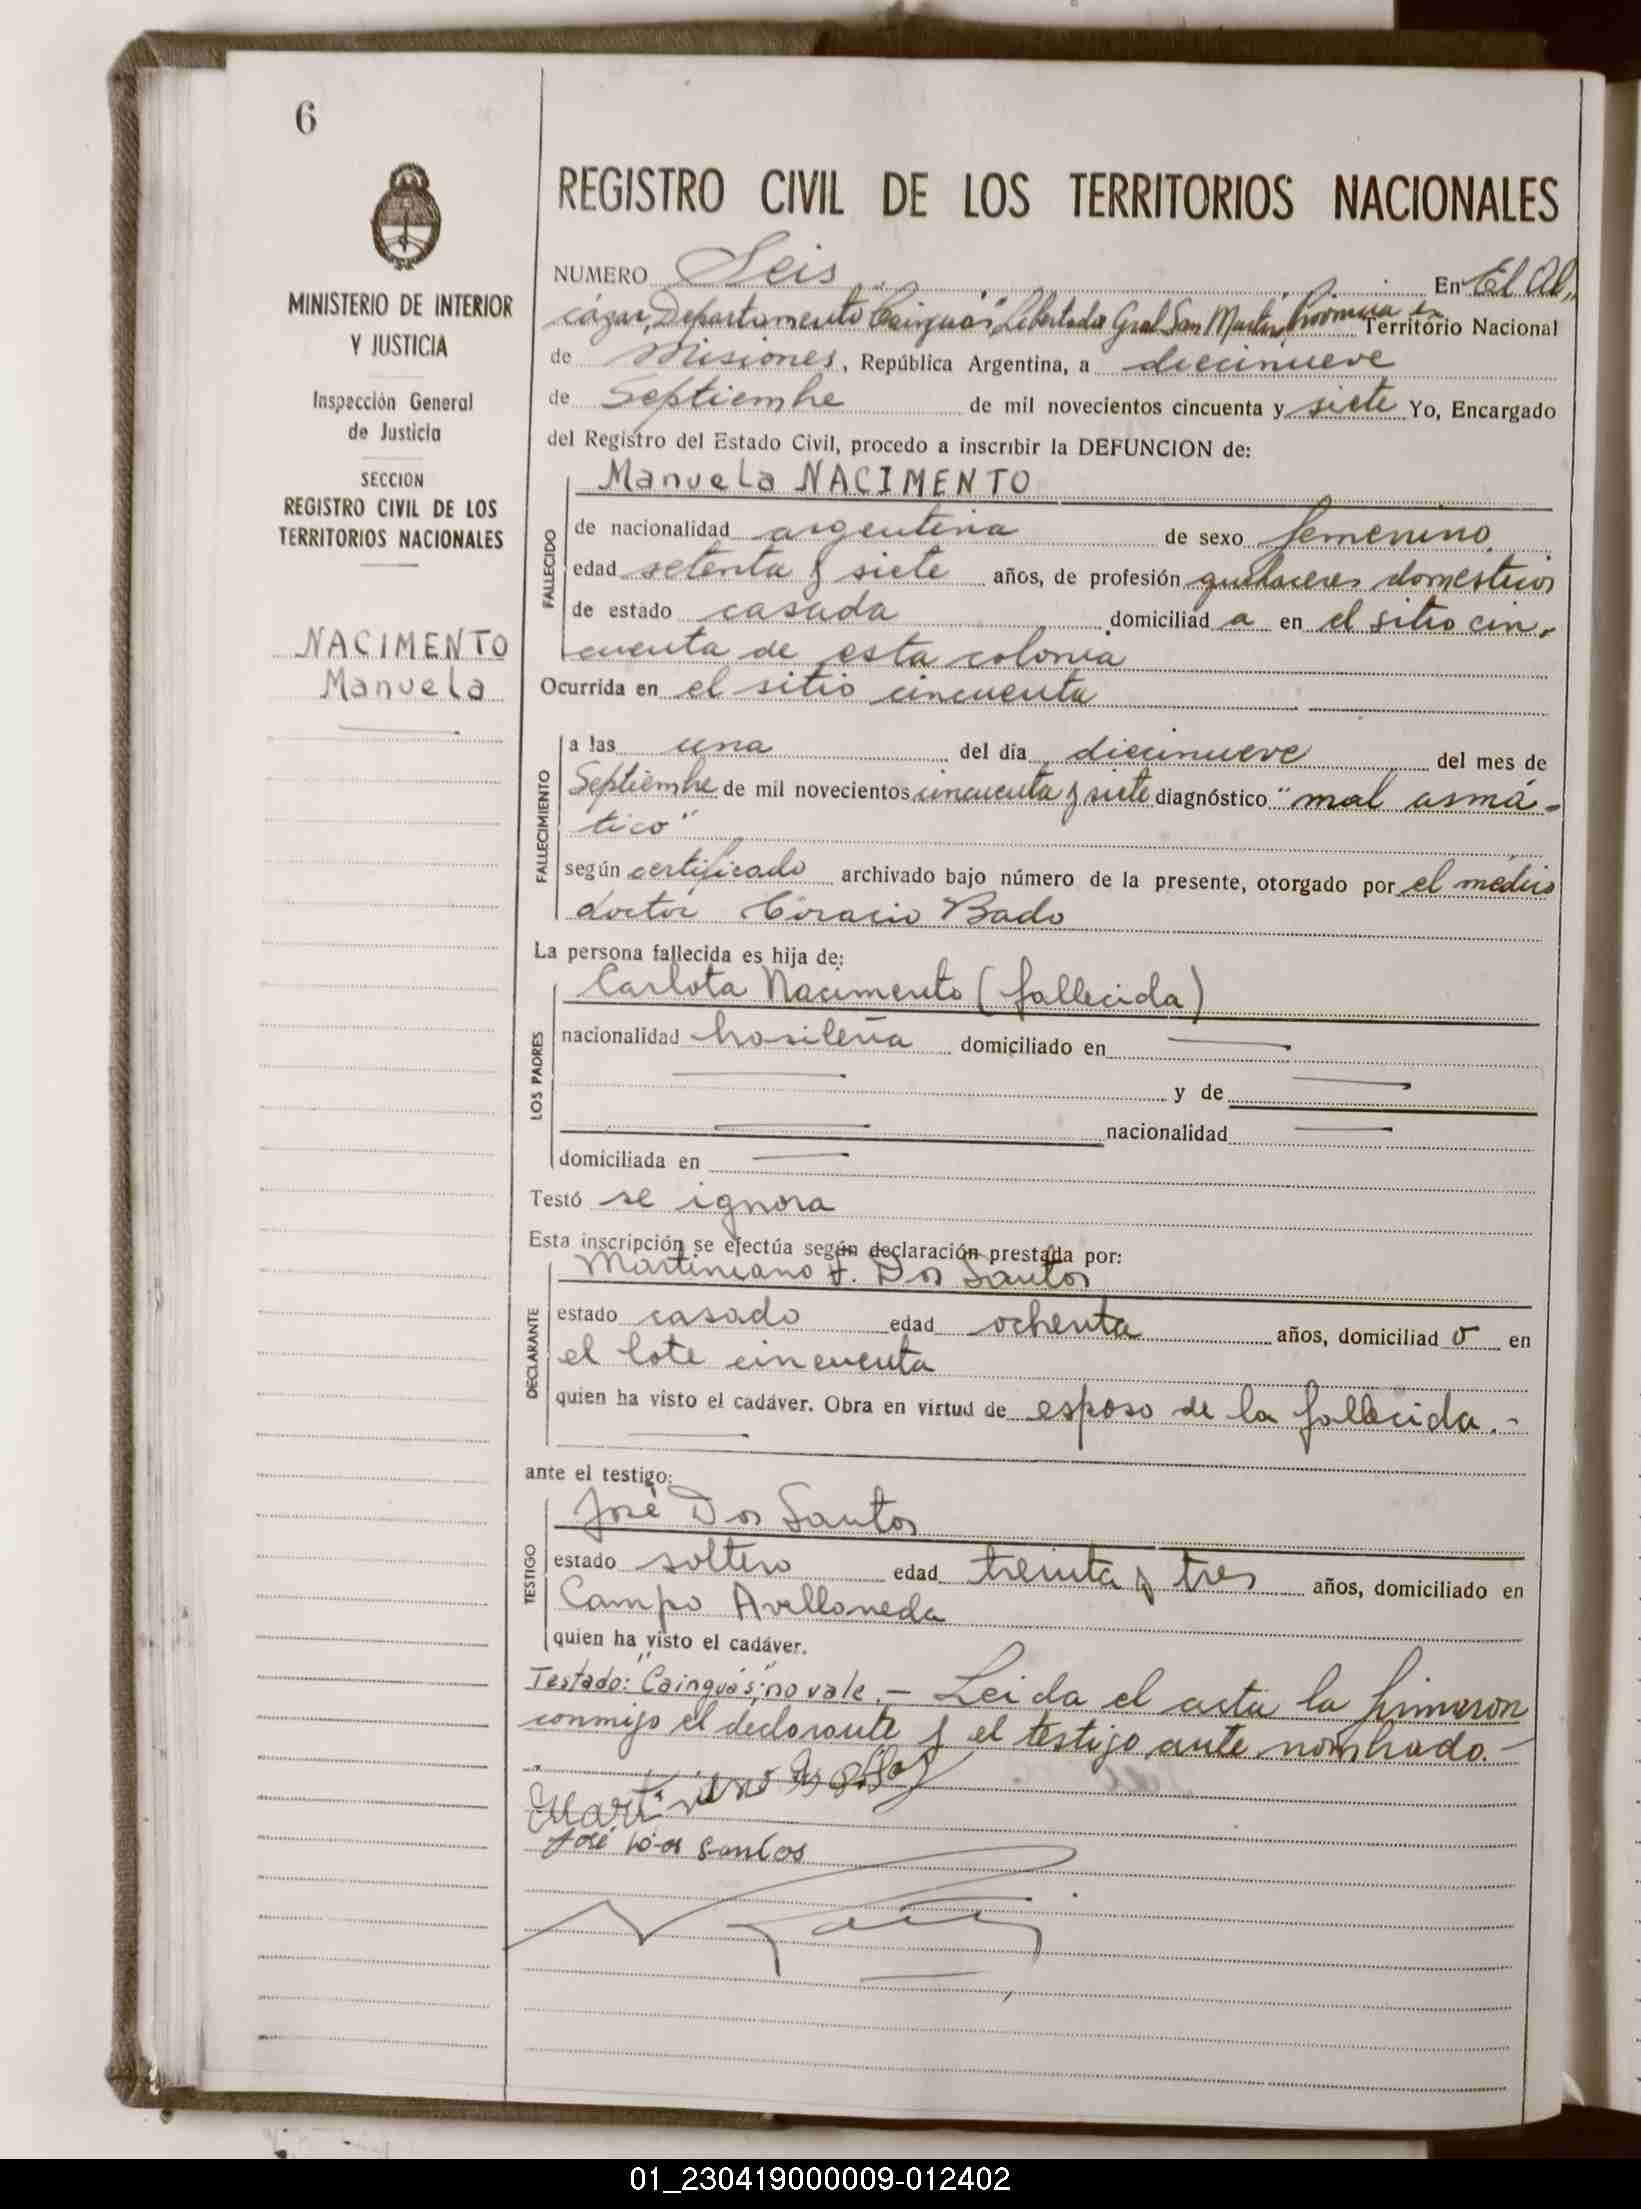 6
MINISTERIO DE INTERIOR
Y JUSTICIA
Inspección General
de Justicia
SECCION
REGISTRO CIVIL DE LOS
TERRITORIOS NACIONALES
NACIMENTO
Manuela
REGISTRO CIVIL DE LOS TERRITORIOS NACIONALES
NUMERO Seis En El Al
cázar, Departamento "Cainguás" Libertador Gral San Martín, Provincia de Territorio Nacional
de Misiones, República Argentina, a diecinueve
de Septiembre de mil novecientos cincuenta y siete Yo, Encargado
del Registro del Estado Civil, procedo a inscribir la DEFUNCION de:
Manuela NACIMENTO
FALLECIDO
de nacionalidad argentina de sexo femenino
edad setenta y siete años, de profesión quehaceres domésticos
de estado casada domiciliad a en el sitio cin-
cuenta de esta colonia
Ocurrida en el sitio cincuenta
FALLECIMIENTO
a las una del día diecinueve del mes de
Septiembre de mil novecientos cincuenta y siete diagnóstico "mal asmá-
tico"
según certificado archivado bajo número de la presente, otorgado por el médico
doctor Bado
La persona fallecida es hija de:
LOS PADRES
Carlota Nacimento (fallecida)
nacionalidad brasileña domiciliado en
y de
nacionalidad
domiciliada en
Testó se ignora
Esta inscripción se efectúa según declaración prestada por:
DECLARANTE
Martiniano F. Dos Santos
estado casado edad ochenta años, domiciliad o en
el lote cincuenta
quien ha visto el cadáver. Obra en virtud de esposo de la fallecida.-
ante el testigo:
TESTIGO
José Dos Santos
estado soltero edad treinta y tres años, domiciliado en
Campo Avellaneda
quien ha visto el cadáver.
Testado: "Cainguás"; no vale.- Leida el acta la firmaron
conmigo el declarante y el testigo ante nombrado.-
José Dos Santos
01_230419000009-012402